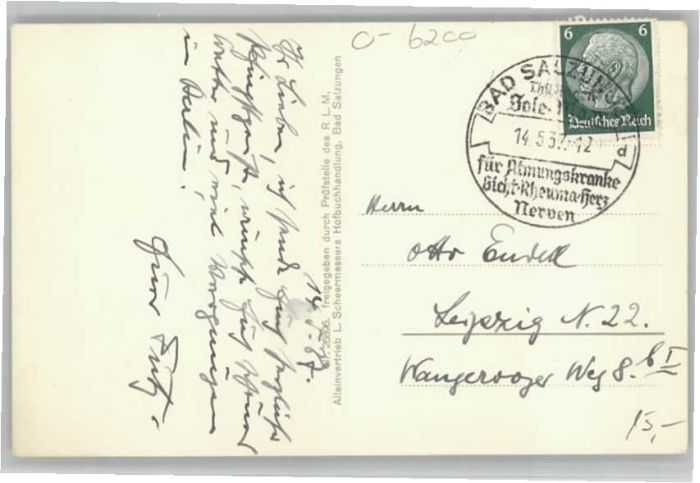 O- 6200
6 6
Deutsches Reich
BAD SALZUNGEN
Sole-
14.5.37.-12
d
für Atmungskranke
Gicht-Rheuma-Herz
Nerven
14.5.37.
Ihr Lieben, ich sende Euch herzliche
Pfingstgrüße, wünsche Euch schönes
Wetter und viel Vergnügen
in Berlin.
Euer Fritz.
freigegeben durch Prüfstelle des R.L.M.
Alleinvertrieb L. Scheermessers Hofbuchhandlung, Bad Salzungen
Herrn
Otto Endell
Leipzig N. 22.
Wangerooger Weg 8. b I
15,-